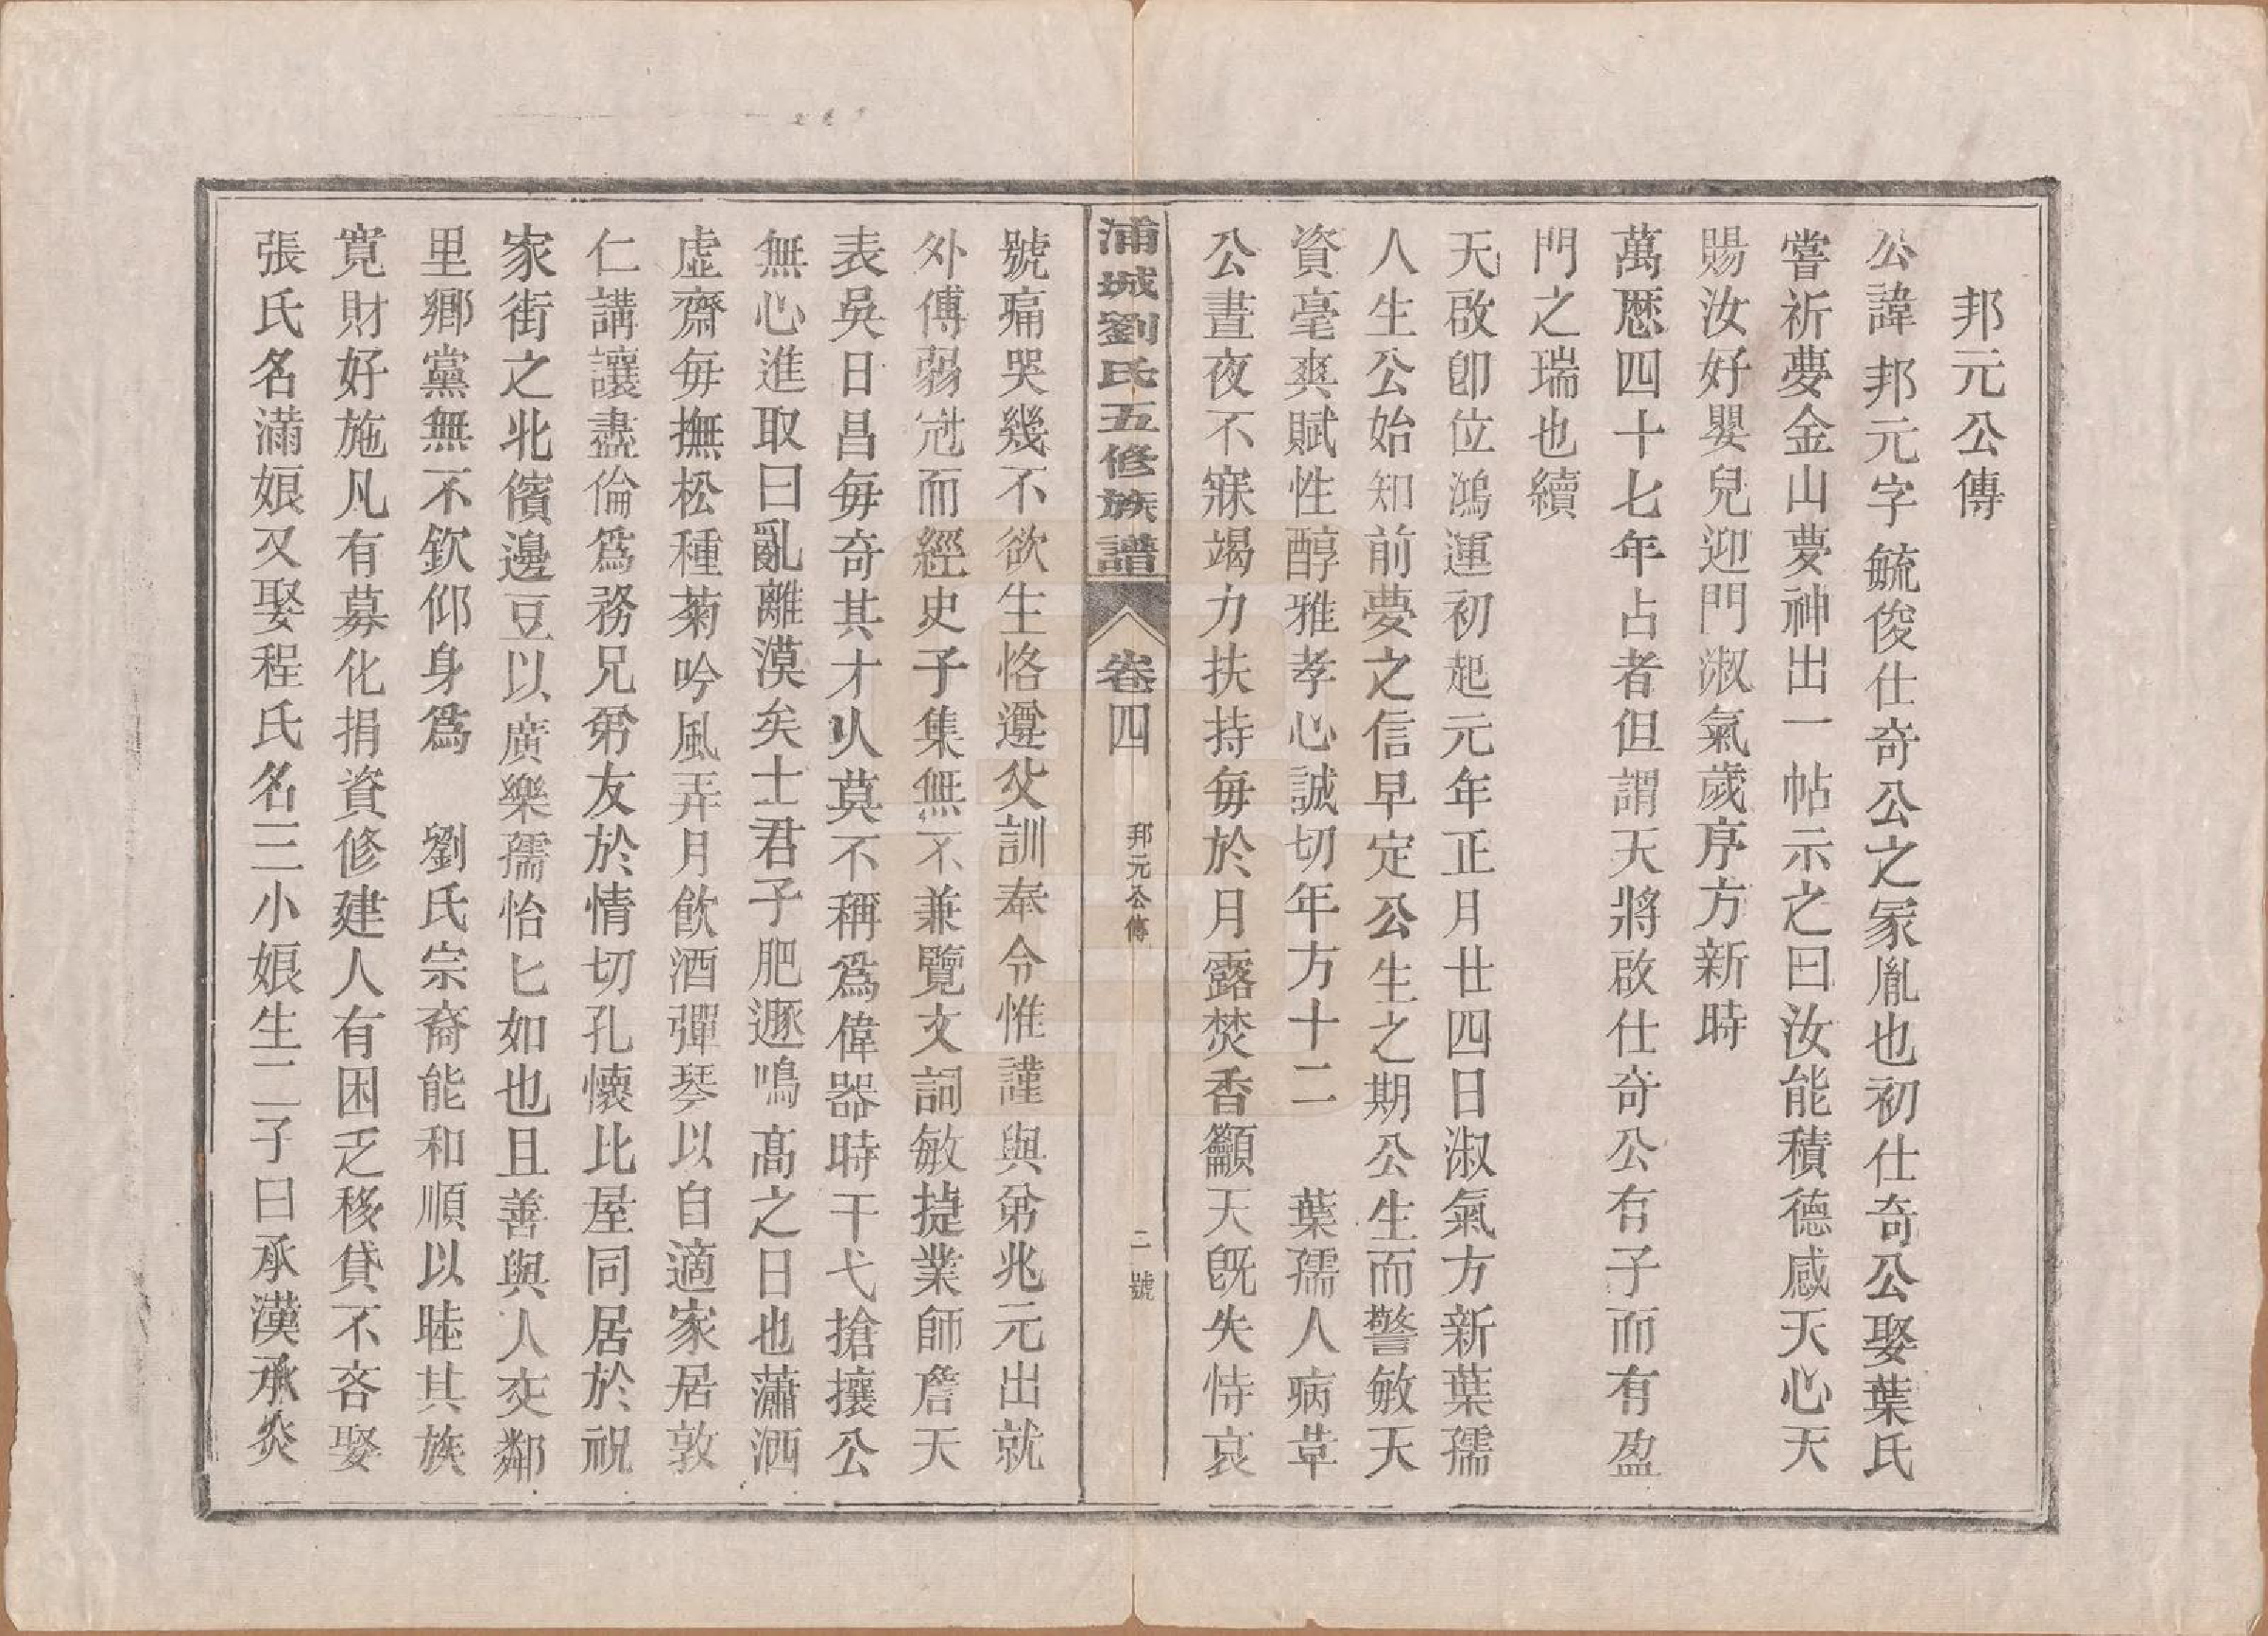 邦元公傳
公諱邦元字毓俊仕奇公之冢胤也初仕奇公娶葉氏
嘗祈夢金山夢神出一帖示之曰汝能積德感天心天
賜汝好嬰兒迎門淑氣歲序方新時
萬厯四十七年占者但謂天將啟仕奇公有子而有盈
門之瑞也續
天啟卽位鴻運初起元年正月廿四日淑氣方新葉孺
人生公始知前夢之信早定公生之期公生而警敏天
資毫爽賦性醇雅孝心誠切年方十二　葉孺人病草
公晝夜不寐竭力扶持每於月露焚香籲天旣失恃哀
浦城劉氏五修族譜　卷四　邦元公傳　二號
號痛哭幾不欲生恪遵父訓奉令惟謹與弟兆元出就
外傅弱冠而經史子集無不兼覽文詞敏捷業師詹天
表吳日昌每奇其才人莫不稱爲偉器時干弋搶攘公
無心進取曰亂離漠矣士君子肥遯鳴高之日也瀟洒
虛齋每撫松種菊吟風弄月飲酒彈琴以自適家居敦
仁講讓盡倫爲務兄弟友於情切孔懷比屋同居於祝
家街之北儐邊豆以廣樂孺怡匕如也且善與人交鄰
里鄉黨無不欽仰身爲　劉氏宗裔能和順以睦其族
寬財好施凡有募化捐資修建人有困乏移貸不吝娶
張氏名滿娘又娶程氏名三小娘生二子曰承漢承炎